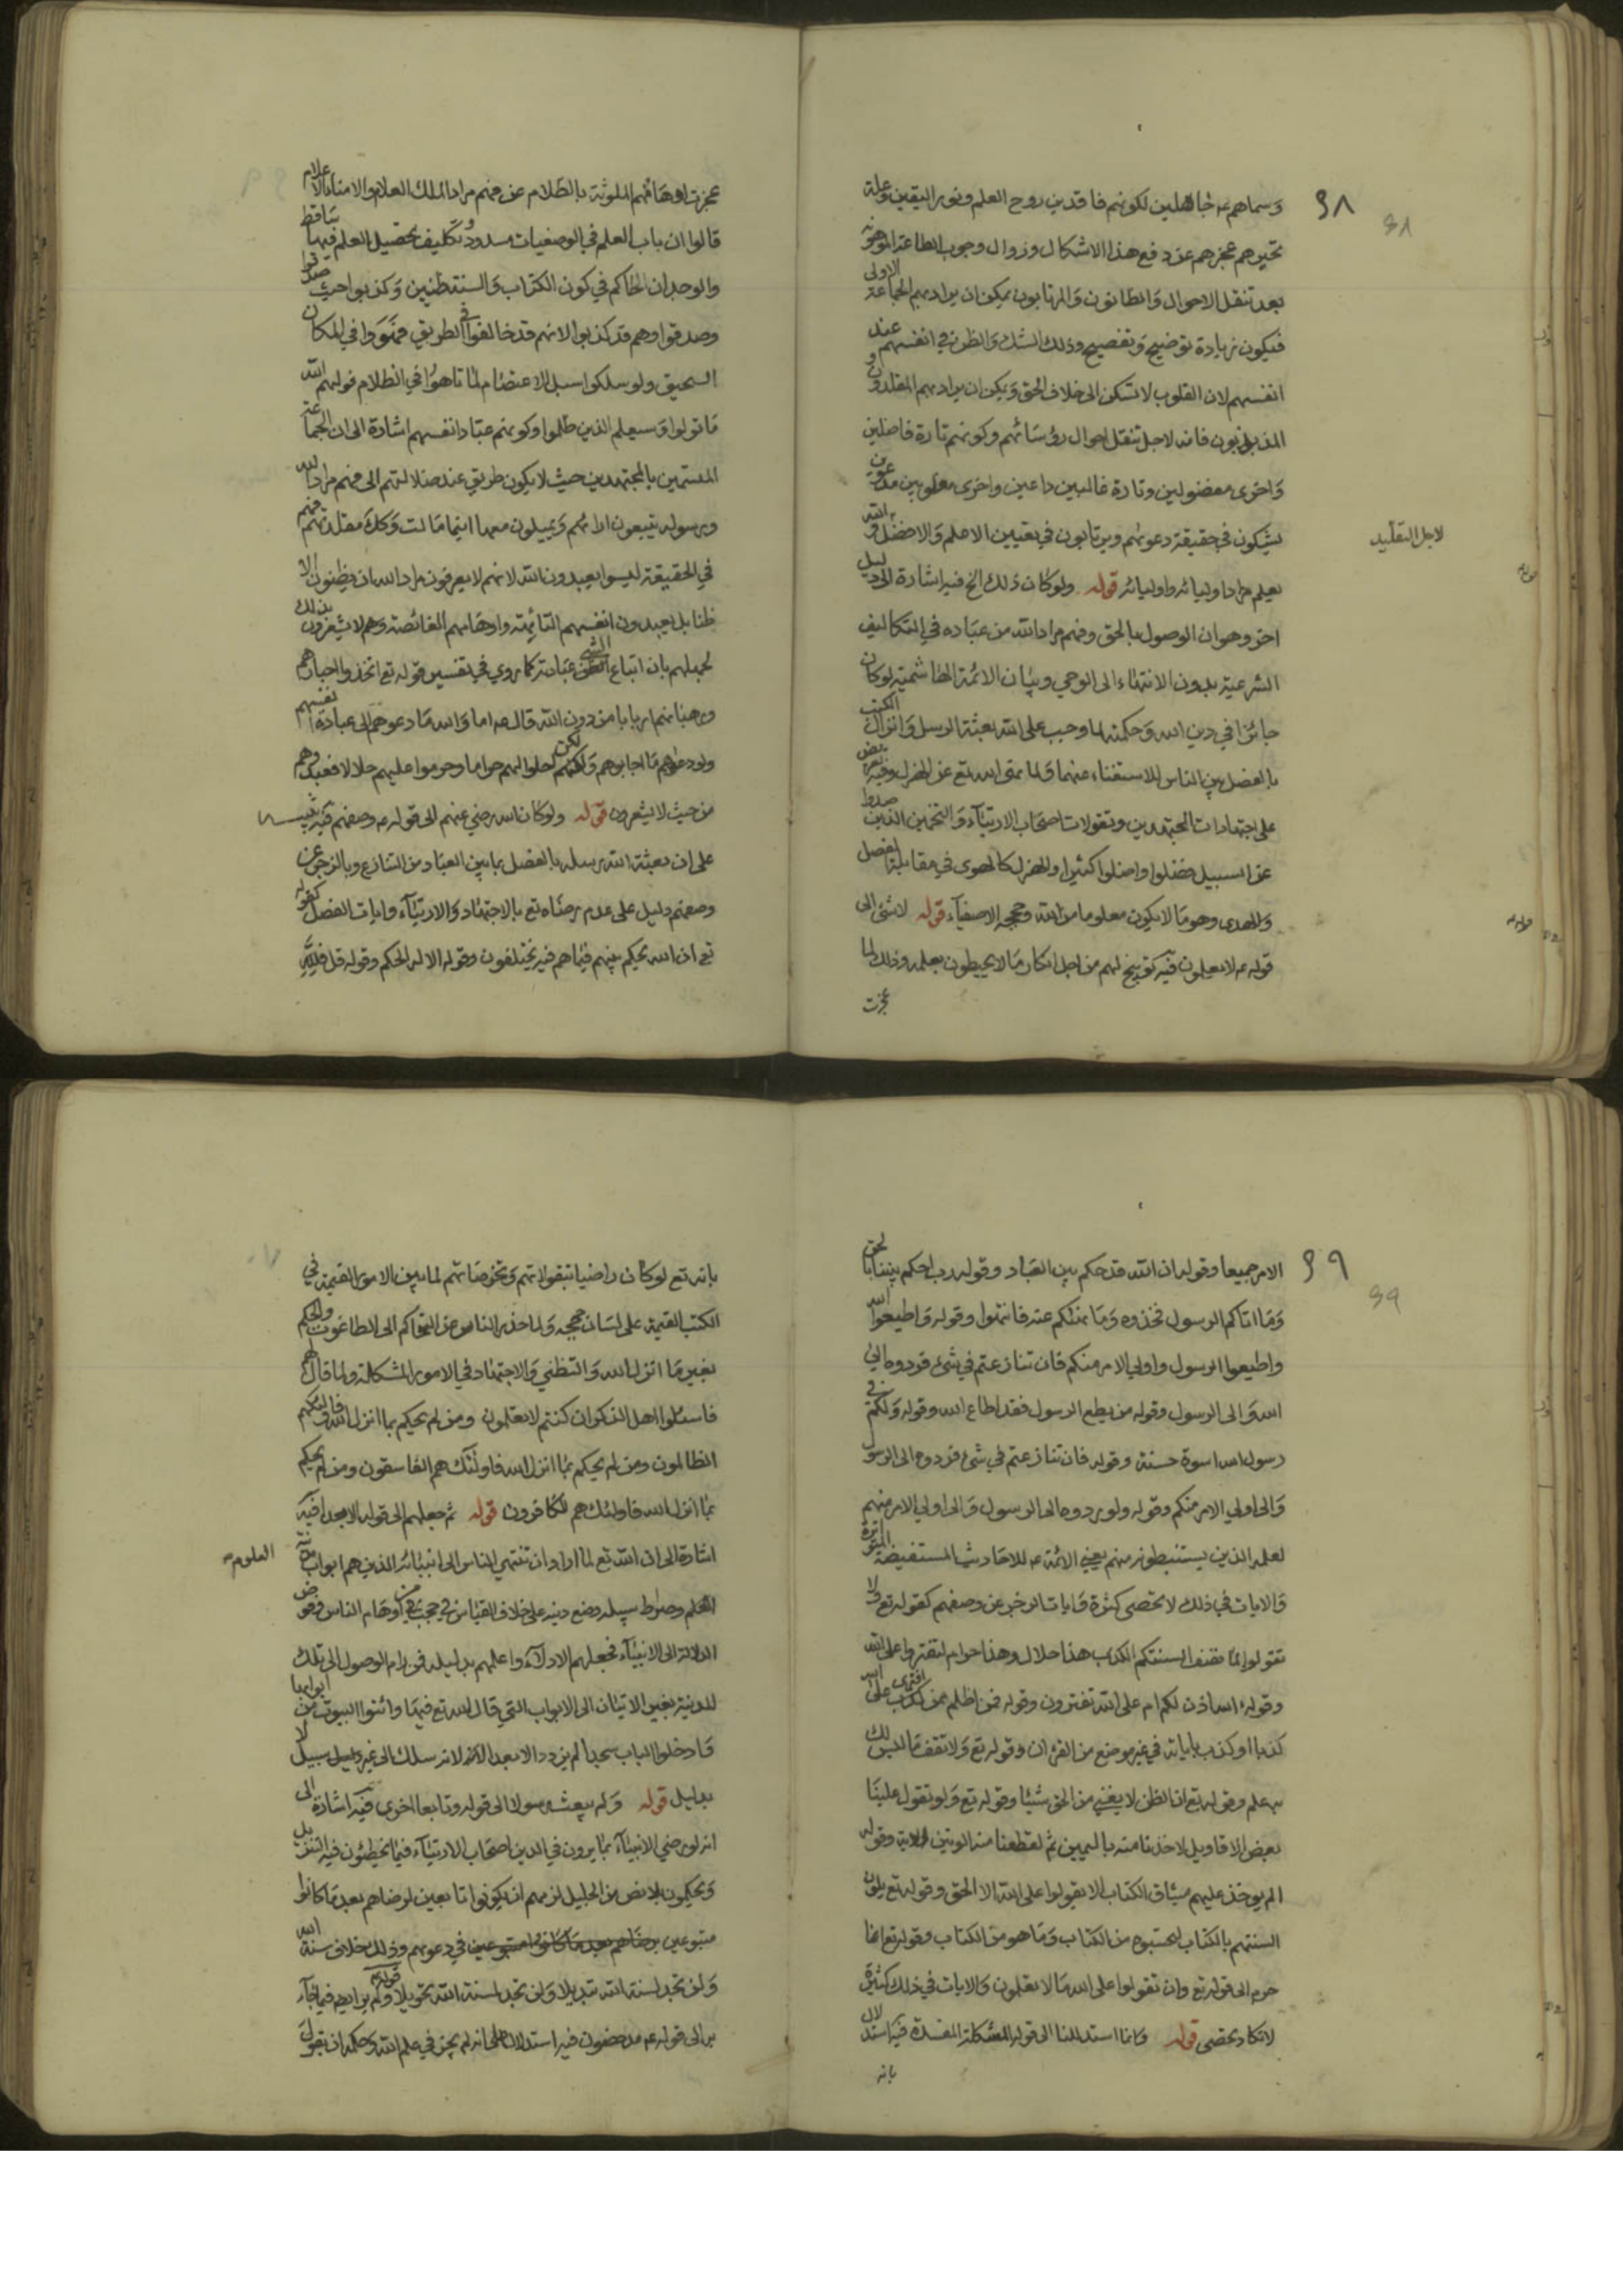 ٦٨
وسماهم ع جاهلين لكونهم فاقدين روح العلم ونور اليقين وعلة
تحيرهم عجزهم عن دفع هذا الاشكال وزوال وجوب اطاعة
بعد تنقل الاحوال والظانون والمرتابون يمكن ان يراد بهم الجماعة الاولى
فيكون زيادة توضيح وتفصيح وذلك الشك والظن في انفسهم عند
انفسهم لان القلوب لا تسكن الى خلاف الحق ويمكن ان يراد بهم المقلدون
المذبذبون فانه لاجل تنقل احوال رؤسائهم وكونهم تارة فاضلين
واخرى مفضولين وتارة غالبين داعين واخرى مغلوبين مدعوين
يشكون في حقيقة دعوتهم ويرتابون في تعيين الاعلم والافضل والله
لاجل التقليد
يعلم مراد اوليائه قوله ولو كان ذلك الخ فيه اشارة الى دليل
اخر وهو ان الوصول بالحق وفهم مراد الله من عباده في التكاليف
الشرعية بدون الانتهاء الى الوحي وبيان الائمة الهاشمية لو كان
جائزا في دين الله وحكمته لما وجب على الله بعثة الرسل وانزال الكتب
بالفصل بين الناس للاستغناء عنهما ولما تمتى الله تع عن الهزل وفيه تعريض
على اجتهادات المجتهدين وتقولات اصحاب الارتياء والتخمين الذين صدوا
عن السبيل فضلوا واضلوا كثيرا والهزل كالهوى في مقابلة الفصل
والهدى وهو ما لا يكون معلوما من الله وحججه الاصفياء قوله لا شئ الى
قوله ع لا يعلمون فيه توبيخ لهم من اجل انكار ما لا يحيطون بعلمه وذلك لما
عجزت
عجزت اوهامهم الملوثة بالظلام عن فهم مراد الملك العلام والامناء الاعلام
قالوا ان باب العلم في الوصفيات مسدود وتكليف تحصيل العلم فيها ساقط
والوجدان الحاكم في كون الكتاب والسنة ظنيين وكذبوا حيث صدقوا
وصدقوا وهم قد كذبوا لانهم قد خالفوا في الطريق فهووا في المكان
السحيق ولو سلكوا سبل الاعتصام لما تاهوا في الظلام فولهم الله
ما تولوا وسيعلم الذين ظلموا وكونهم عباد انفسهم اشارة الى ان الجماعة
المسمين بالمجتهدين حيث لا يكون طريق عند ضلالتهم الى فهم مراد الله
ورسوله يتبعون اراءهم ويميلون معها اينما مالت وكذا مقلدتهم فهم
في الحقيقة ليسوا يعبدون الله لانهم لا يعرفون مراد الله ان يظنون الا
ظنا بل يعبدون انفسهم التائهة واوهامهم الغائصة وهم لا يشعرون بذلك
لجهلهم بان اتباع الشئ عبادته كما روي في تفسير قوله تع اتخذوا احبارهم
ورهبانهم اربابا من دون الله قال ع اما والله ما دعوهم الى عبادة انفسهم
ولو دعوهم ما اجابوهم ولكن احلوا لهم حراما وحرموا عليهم حلالا فعبدوهم
من حيث لا يشعرون قوله ولو كان الله رضي عنهم الى قوله ع وصفهم فيه تنبيه
على ان بعثة الله رسله بالفصل بما بين العباد من التنازع وبالزجر عن
وصفهم دليل على عدم رضاه تع بالاجتهاد والارتياء وايات الفصل كقوله
تع ان الله يحكم بينهم فيما هم فيه يختلفون وقوله الا له الحكم وقوله قل فلله
٦٩
الامر جميعا وقوله ان الله قد حكم بين العباد وقوله رب احكم بيننا بالحق
وما اتاكم الرسول فخذوه وما نهاكم عنه فانتهوا وقوله واطيعوا الله
واطيعوا الرسول واولي الامر منكم فان تنازعتم في شئ فردوه الى
الله والى الرسول وقوله من يطع الرسول فقد اطاع الله وقوله ولكم في
رسول الله اسوة حسنة وقوله فان تنازعتم في شئ فردوه الى الرسول
والى اولي الامر منكم وقوله ولو ردوه الى الرسول والى اولي الامر منهم
لعلمه الذين يستنبطونه منهم يعني الائمة ع للاحاديث المستفيضة المتواترة
والايات في ذلك لا تحصى كثرة وايات الزجر عن وصفهم كقوله تع ولا
تقولوا لما تصف السنتكم الكذب هذا حلال وهذا حرام لتفتروا على الله
وقوله ءالله اذن لكم ام على الله تفترون وقوله فمن اظلم ممن افترى على الله
كذبا او كذب باياته في غير موضع من القران وقوله تع ولا تقف ما ليس لك
به علم وقوله تع ان الظن لا يغني من الحق شيئا وقوله تع ولو تقول علينا
بعض الاقاويل لاخذنا منه باليمين ثم لقطعنا منه الوتين الاية وقوله
الم يوخذ عليهم ميثاق الكتاب الا يقولوا على الله الا الحق وقوله تع يلون
السنتهم بالكتاب لتحسبوه من الكتاب وما هو من الكتاب وقوله تع انما
حرم الى قوله تع وان تقولوا على الله ما لا تعلمون والايات في ذلك كثيرة
لا تكاد تحصى قوله وانما استدللنا الى قوله المشكلة المفسدة فيه استدلال
بانه
بانه تع لو كان راضيا بتقولاتهم وتخرصاتهم لما بين الامور القيمة في
الكتب القيمة على لسان حججه ولما حذر الناس عن التحاكم الى الطاغوت والحكم
بغير ما انزل الله والتظني والاجتهاد في الامور المشكلة ولما قال لهم
فاسئلوا اهل الذكر ان كنتم لا تعلمون ومن لم يحكم بما انزل الله فاولئك هم
الظالمون ومن لم يحكم بما انزل الله فاولئك هم الفاسقون ومن لم يحكم
بما انزل الله فاولئك هم الكافرون قوله ثم جعلهم الى قوله الا بعدا فيه
اشارة الى ان الله تع لما اراد ان تنتهي الناس الى انبيائه الذين هم ابواب مدينة
العلوم
العلم وصراط سبيله وضع دينه على خلاف القياس في اوهام الناس وفوض
الدلالة الى الانبياء فجعلهم الادلاء واعلمهم بدليله فمن رام الوصول الى تلك
المدينة بغير الاتيان الى الابواب التي قال الله تع فيها وائتوا البيوت من ابوابها
وادخلوا الباب سجدا لم يزدد الا بعدا لانه سلك الى غير سبيل لا
بدليل قوله ولم يبعث رسولا الى قوله وتابعا اخرى فيه اشارة الى
انه لو رضي الانبياء بما يرون في الدين اصحاب الارتياء فيما يخطئون فيه التنزيل
ويحكمون بلا نص من الجليل لزمهم ان يكونوا تابعين لرضاهم بعد ما كانوا
متبوعين في دعوتهم وذلك خلاف سنة الله
ولن تجد لسنة الله تبديلا ولن تجد لسنة الله تحويلا قوله ولم ير ايضا فيما جاء
به الى قوله ع مدحضون فيه استدلال على انه لم يجز في علم الله وحكمه ان يقول